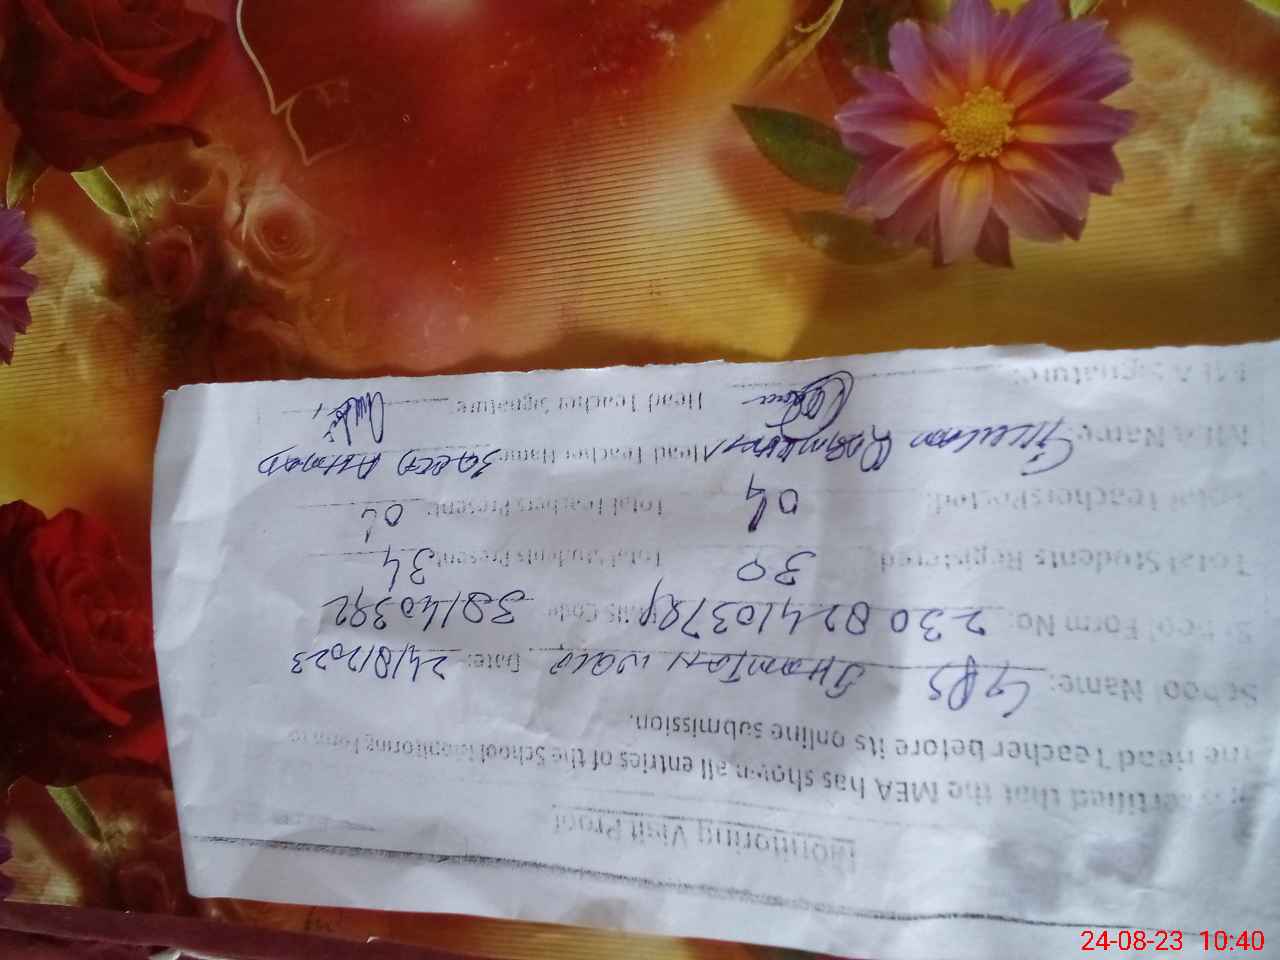 Monitoring Visit Proof
certified that the MEA has shown all entries of the School Monitoring Form to
the Head Teacher before its online submission.
School Name: GPS wala Date: 24/8/2023
School Form No: Code 38140392
Total Students Registered 39 Total Students Present 34
Total Teachers Posted: 04 Total Teachers Present: 04
MEA Name: Head Teacher Name: Saeed Ahmad
MEA Signature: Head Teacher Signature:
24-08-23 10:40